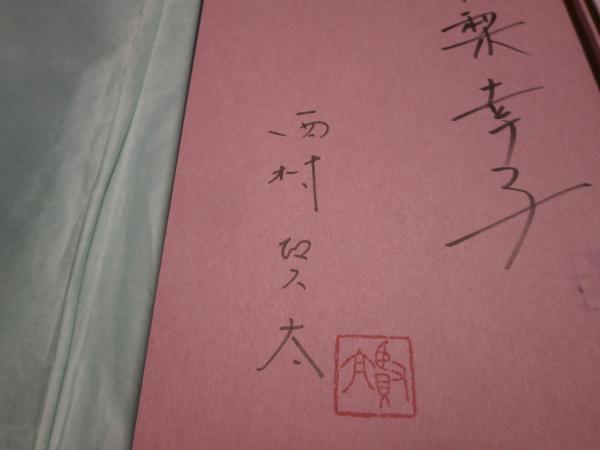 梨幸子
西村賢太